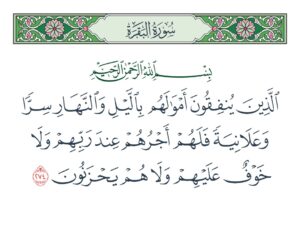 سُورَةُ البَقَرَةِ
بِسْمِ اللَّهِ الرَّحْمَٰنِ الرَّحِيمِ
الَّذِينَ يُنفِقُونَ أَمْوَٰلَهُم بِالَّيْلِ وَالنَّهَارِ سِرًّا
وَعَلَانِيَةً فَلَهُمْ أَجْرُهُمْ عِندَ رَبِّهِمْ وَلَا
خَوْفٌ عَلَيْهِمْ وَلَا هُمْ يَحْزَنُونَ ٢٧٤